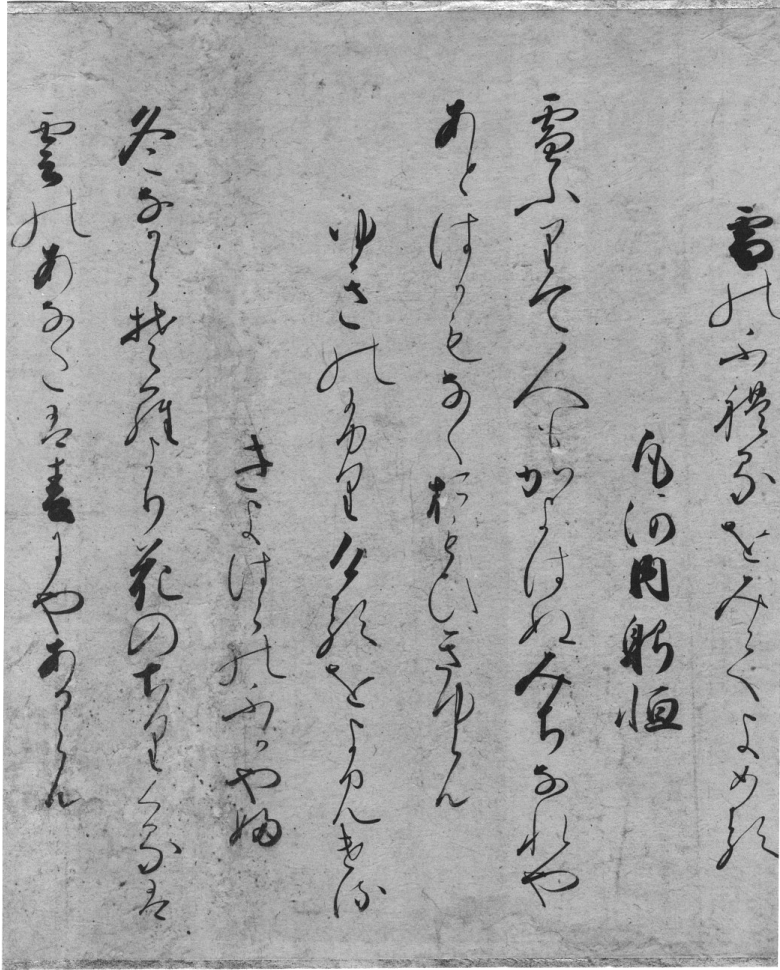 雪のふれるをみてよめる
凡河内躬恒
雪ふりて人もかよはぬみちなれや
あとはかもなくおもひきゆらん
ゆきのふりけるをよみける
きよはらのふかやふ
冬なからそらより花のちりくるは
雲のあなたは春にやあるらん